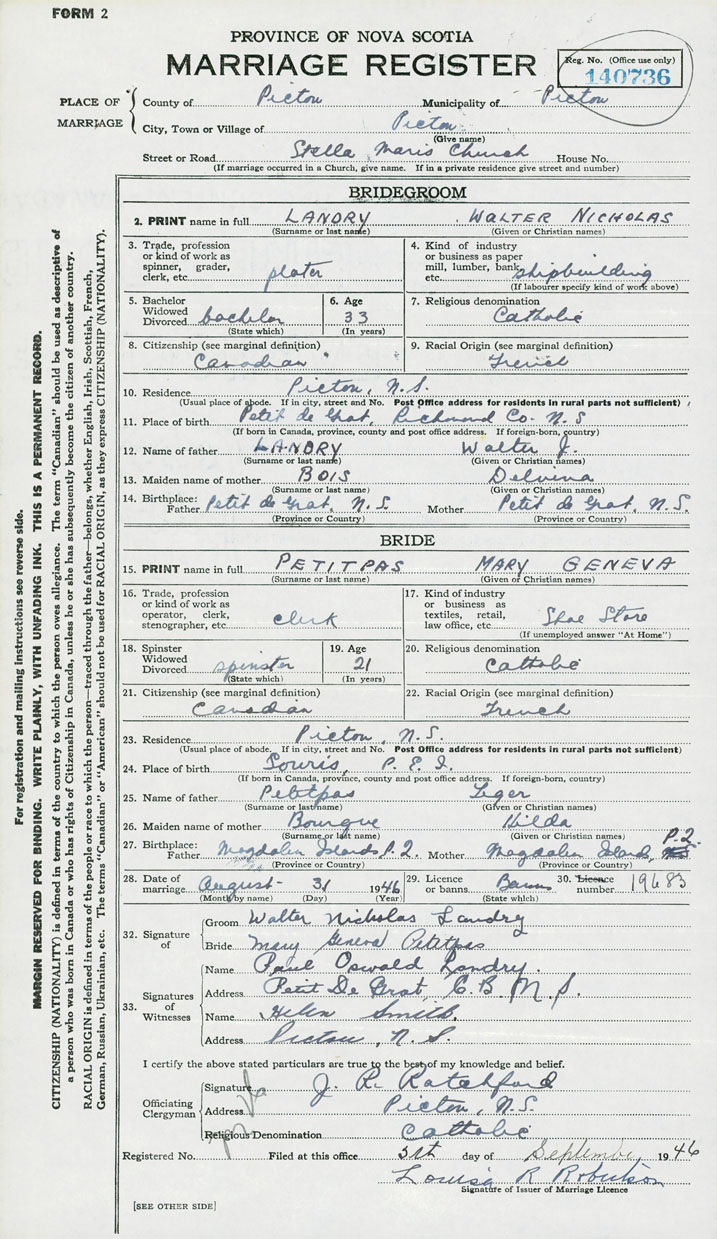 FORM 2
PROVINCE OF NOVA SCOTIA
MARRIAGE REGISTER
Reg. No. (Office use only)
140736
PLACE OF MARRIAGE
County of Pictou Municipality of Pictou
City, Town or Village of Pictou
(Give name)
Street or Road Stella Maris Church House No.
(If marriage occurred in a Church, give name. If in a private residence give street and number)
BRIDEGROOM
2. PRINT name in full LANDRY WALTER NICHOLAS
(Surname or last name) (Given or Christian names)
3. Trade, profession or kind of work as spinner, grader, clerk, etc. plater
4. Kind of industry or business as paper mill, lumber, bank, etc. shipbuilding
(If labourer specify kind of work above)
5. Bachelor Widowed Divorced bachelor
(State which)
6. Age 33
(In years)
7. Religious denomination
Catholic
8. Citizenship (see marginal definition)
Canadian
9. Racial Origin (see marginal definition)
French
10. Residence Pictou, N.S.
(Usual place of abode. If in city, street and No. Post Office address for residents in rural parts not sufficient)
11. Place of birth Petit de Grat, Richmond Co. N.S
(If born in Canada, province, county and post office address. If foreign-born, country)
12. Name of father LANDRY Walter J.
(Surname or last name) (Given or Christian names)
13. Maiden name of mother BOIS Delvina
(Surname or last name) (Given or Christian names)
14. Birthplace: Father Petit de Grat, N.S. Mother Petit de Grat, N.S.
(Province or Country) (Province or Country)
BRIDE
15. PRINT name in full PETITPAS MARY GENEVA
(Surname or last name) (Given or Christian names)
16. Trade, profession or kind of work as operator, clerk, stenographer, etc. clerk
17. Kind of industry or business as textiles, retail, law office, etc. Shoe Store
(If unemployed answer "At Home")
18. Spinster Widowed Divorced spinster
(State which)
19. Age 21
(In years)
20. Religious denomination
Catholic
21. Citizenship (see marginal definition)
Canadian
22. Racial Origin (see marginal definition)
French
23. Residence Pictou, N.S.
(Usual place of abode. If in city, street and No. Post Office address for residents in rural parts not sufficient)
24. Place of birth Souris, P.E.I.
(If born in Canada, province, county and post office address. If foreign-born, country)
25. Name of father Petitpas Leger
(Surname or last name) (Given or Christian names)
26. Maiden name of mother Bourque Hilda
(Surname or last name) (Given or Christian names)
27. Birthplace: Father Magdalin Islands P.Q. Mother Magdalin Island, P.Q.
(Province or Country) (Province or Country)
28. Date of marriage August 31 1946
(Month by name) (Day) (Year)
29. Licence or banns Banns
(State which)
30. Licence number 19683
32. Signature of
Groom Walter Nicholas Landry
Bride Mary Geneva Petitpas
33. Signatures of Witnesses
Name Paul Oswald Landry.
Address Petit De Grat, C.B. N.S.
Name Helen Smith.
Address Pictou, N.S.
I certify the above stated particulars are true to the best of my knowledge and belief.
Officiating Clergyman
Signature J. R. Ratchford
Address Pictou, N.S.
Religious Denomination Catholic
Registered No. Filed at this office 3rd day of September 1946
Louisa R Robertson
Signature of Issuer of Marriage Licence
[SEE OTHER SIDE]
For registration and mailing instructions see reverse side.
MARGIN RESERVED FOR BINDING. WRITE PLAINLY, WITH UNFADING INK. THIS IS A PERMANENT RECORD.
CITIZENSHIP (NATIONALITY) is defined in terms of the country to which the person owes allegiance. The term "Canadian" should be used as descriptive of
a person who was born in Canada or who has rights of Citizenship in Canada, unless he or she has subsequently become the citizen of another country.
RACIAL ORIGIN is defined in terms of the people or race to which the person—traced through the father—belongs, whether English, Irish, Scottish, French,
German, Russian, Ukrainian, etc. The terms "Canadian" or "American" should not be used for RACIAL ORIGIN, as they express CITIZENSHIP (NATIONALITY).